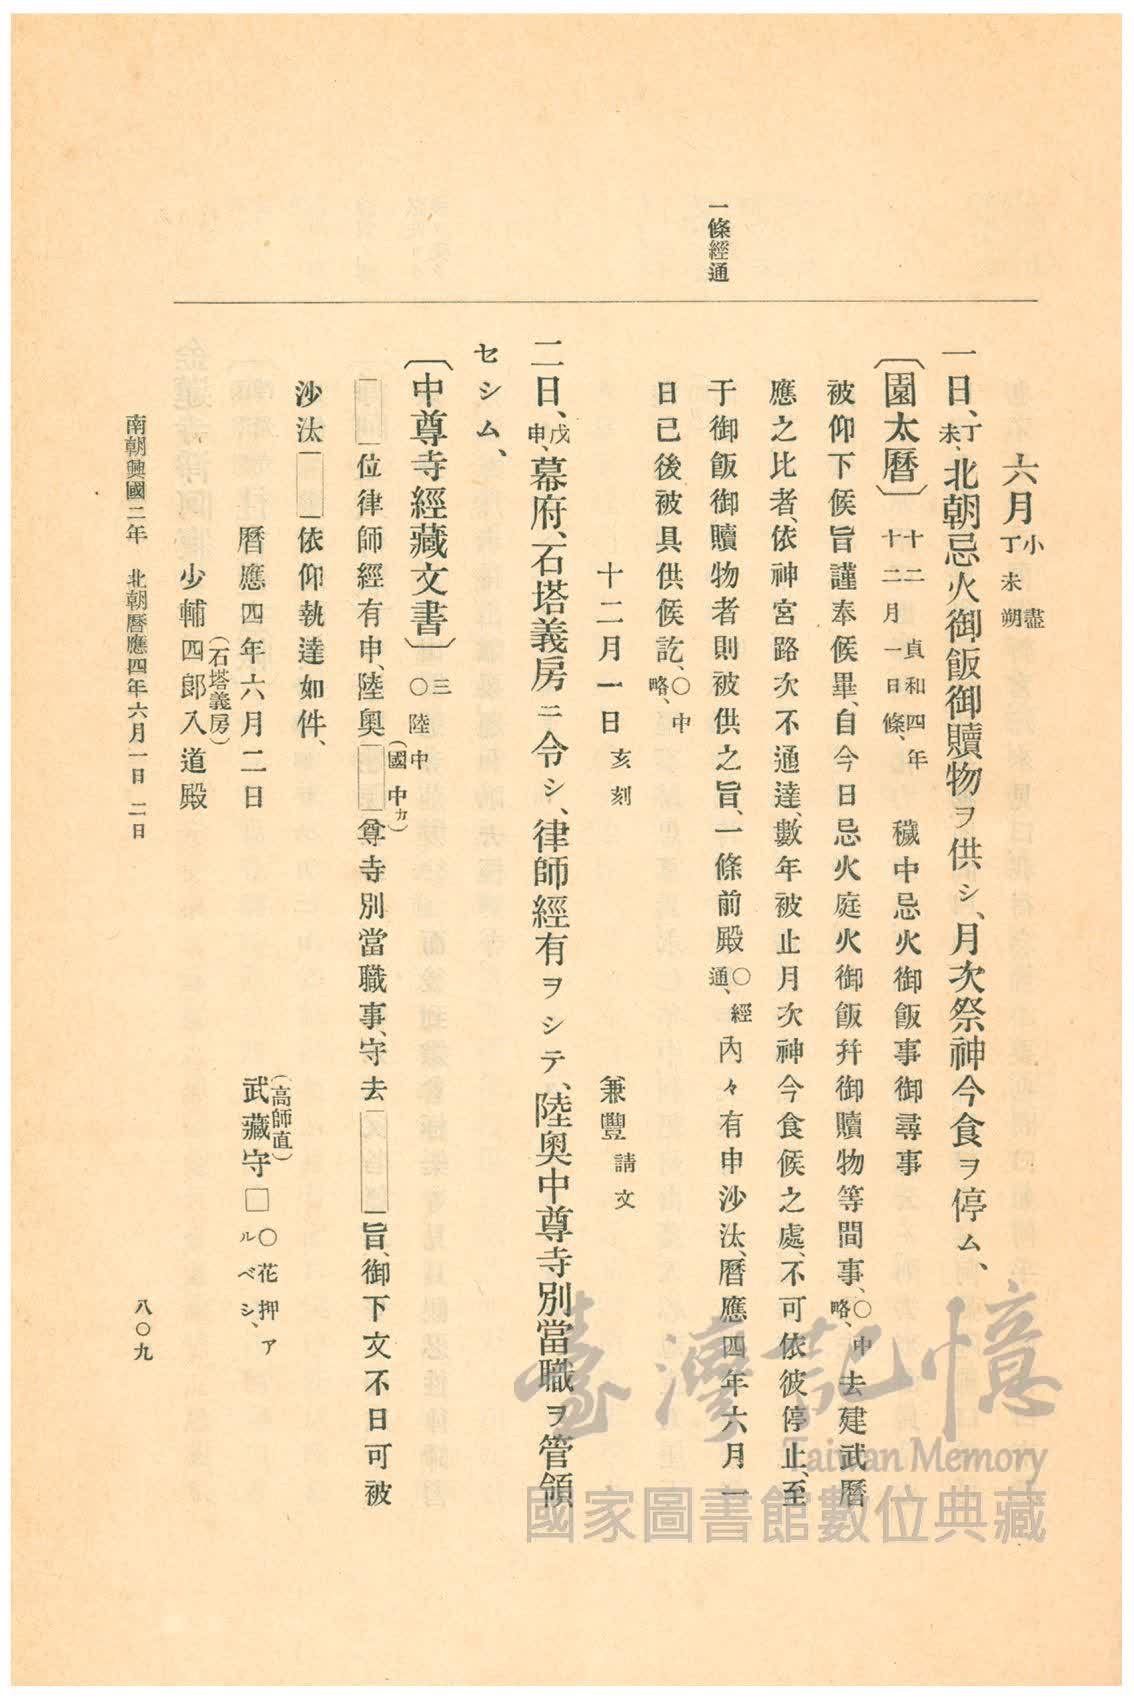 一條經通
六月小盡丁未朔
一日、丁未、北朝忌火御飯御贖物ヲ供シ、月次祭神今食ヲ停ム、
〔園太曆〕十二 貞和四年十二月一日條、 穢中忌火御飯事御尋事
被仰下候旨謹奉候畢、自今日忌火庭火御飯幷御贖物等間事、〇中略、去建武曆
應之比者、依神宮路次不通達、數年被止月次神今食候之處、不可依彼停止、至
于御飯御贖物者則被供之旨、一條前殿〇經通、內々有申沙汰、曆應四年六月一
日已後被具供候訖、〇中略、
十二月一日亥刻 兼豐請文
二日、戊申、幕府、石塔義房ニ令シ、律師經有ヲシテ、陸奧中尊寺別當職ヲ管領
セシム、
〔中尊寺經藏文書〕三〇陸中
□位律師經有申、陸奧□(國中カ)尊寺別當職事、守去□旨、御下文不日可被
沙汰□依仰執達如件、
曆應四年六月二日 武藏守(高師直)□〇花押アルベシ、
少輔四郎入道殿(石塔義房)
南朝興國二年 北朝曆應四年六月一日 二日
八〇九
臺灣記憶
Taiwan Memory
國家圖書館數位典藏